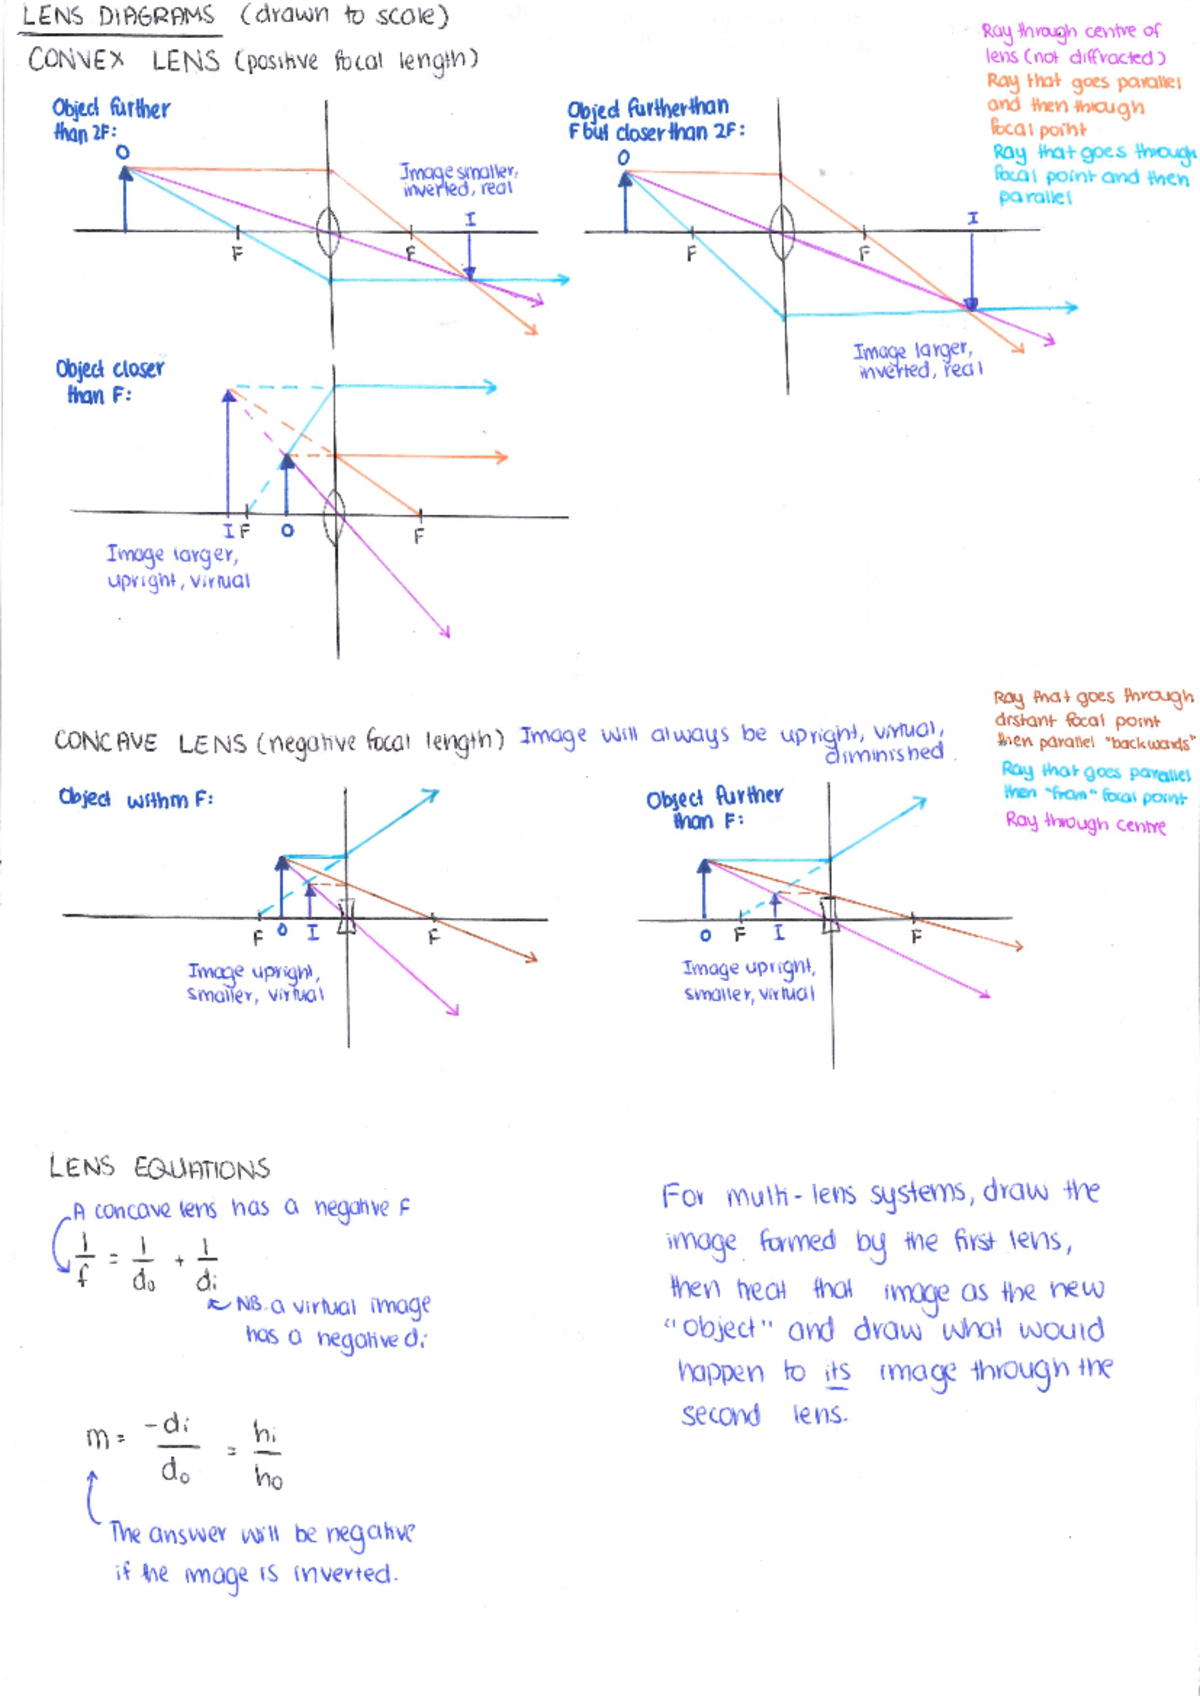 LENS DIAGRAMS (drawn to scale)
CONVEX LENS (positive focal length)
Ray through centre of
lens (not diffracted)
Ray that goes parallel
and then through
focal point
Ray that goes through
focal point and then
parallel
Object further
than 2F:
O
Image smaller,
inverted, real
I
F
F
Object further than
F but closer than 2F:
O
I
F
F
Image larger,
inverted, real
Object closer
than F:
I F
O
F
Image larger,
upright, virtual
CONCAVE LENS (negative focal length) Image will always be upright, virtual,
diminished.
Ray that goes through
distant focal point
then parallel "backwards"
Ray that goes parallel
then "from" focal point
Ray through centre
Object within F:
F O I
F
Image upright,
smaller, virtual
Object further
than F:
O F I
F
Image upright,
smaller, virtual
LENS EQUATIONS
A concave lens has a negative f
1/f = 1/do + 1/di
NB. a virtual image
has a negative di
m = -di/do = hi/ho
The answer will be negative
if the image is inverted.
For multi-lens systems, draw the
image formed by the first lens,
then treat that image as the new
"object" and draw what would
happen to its image through the
second lens.